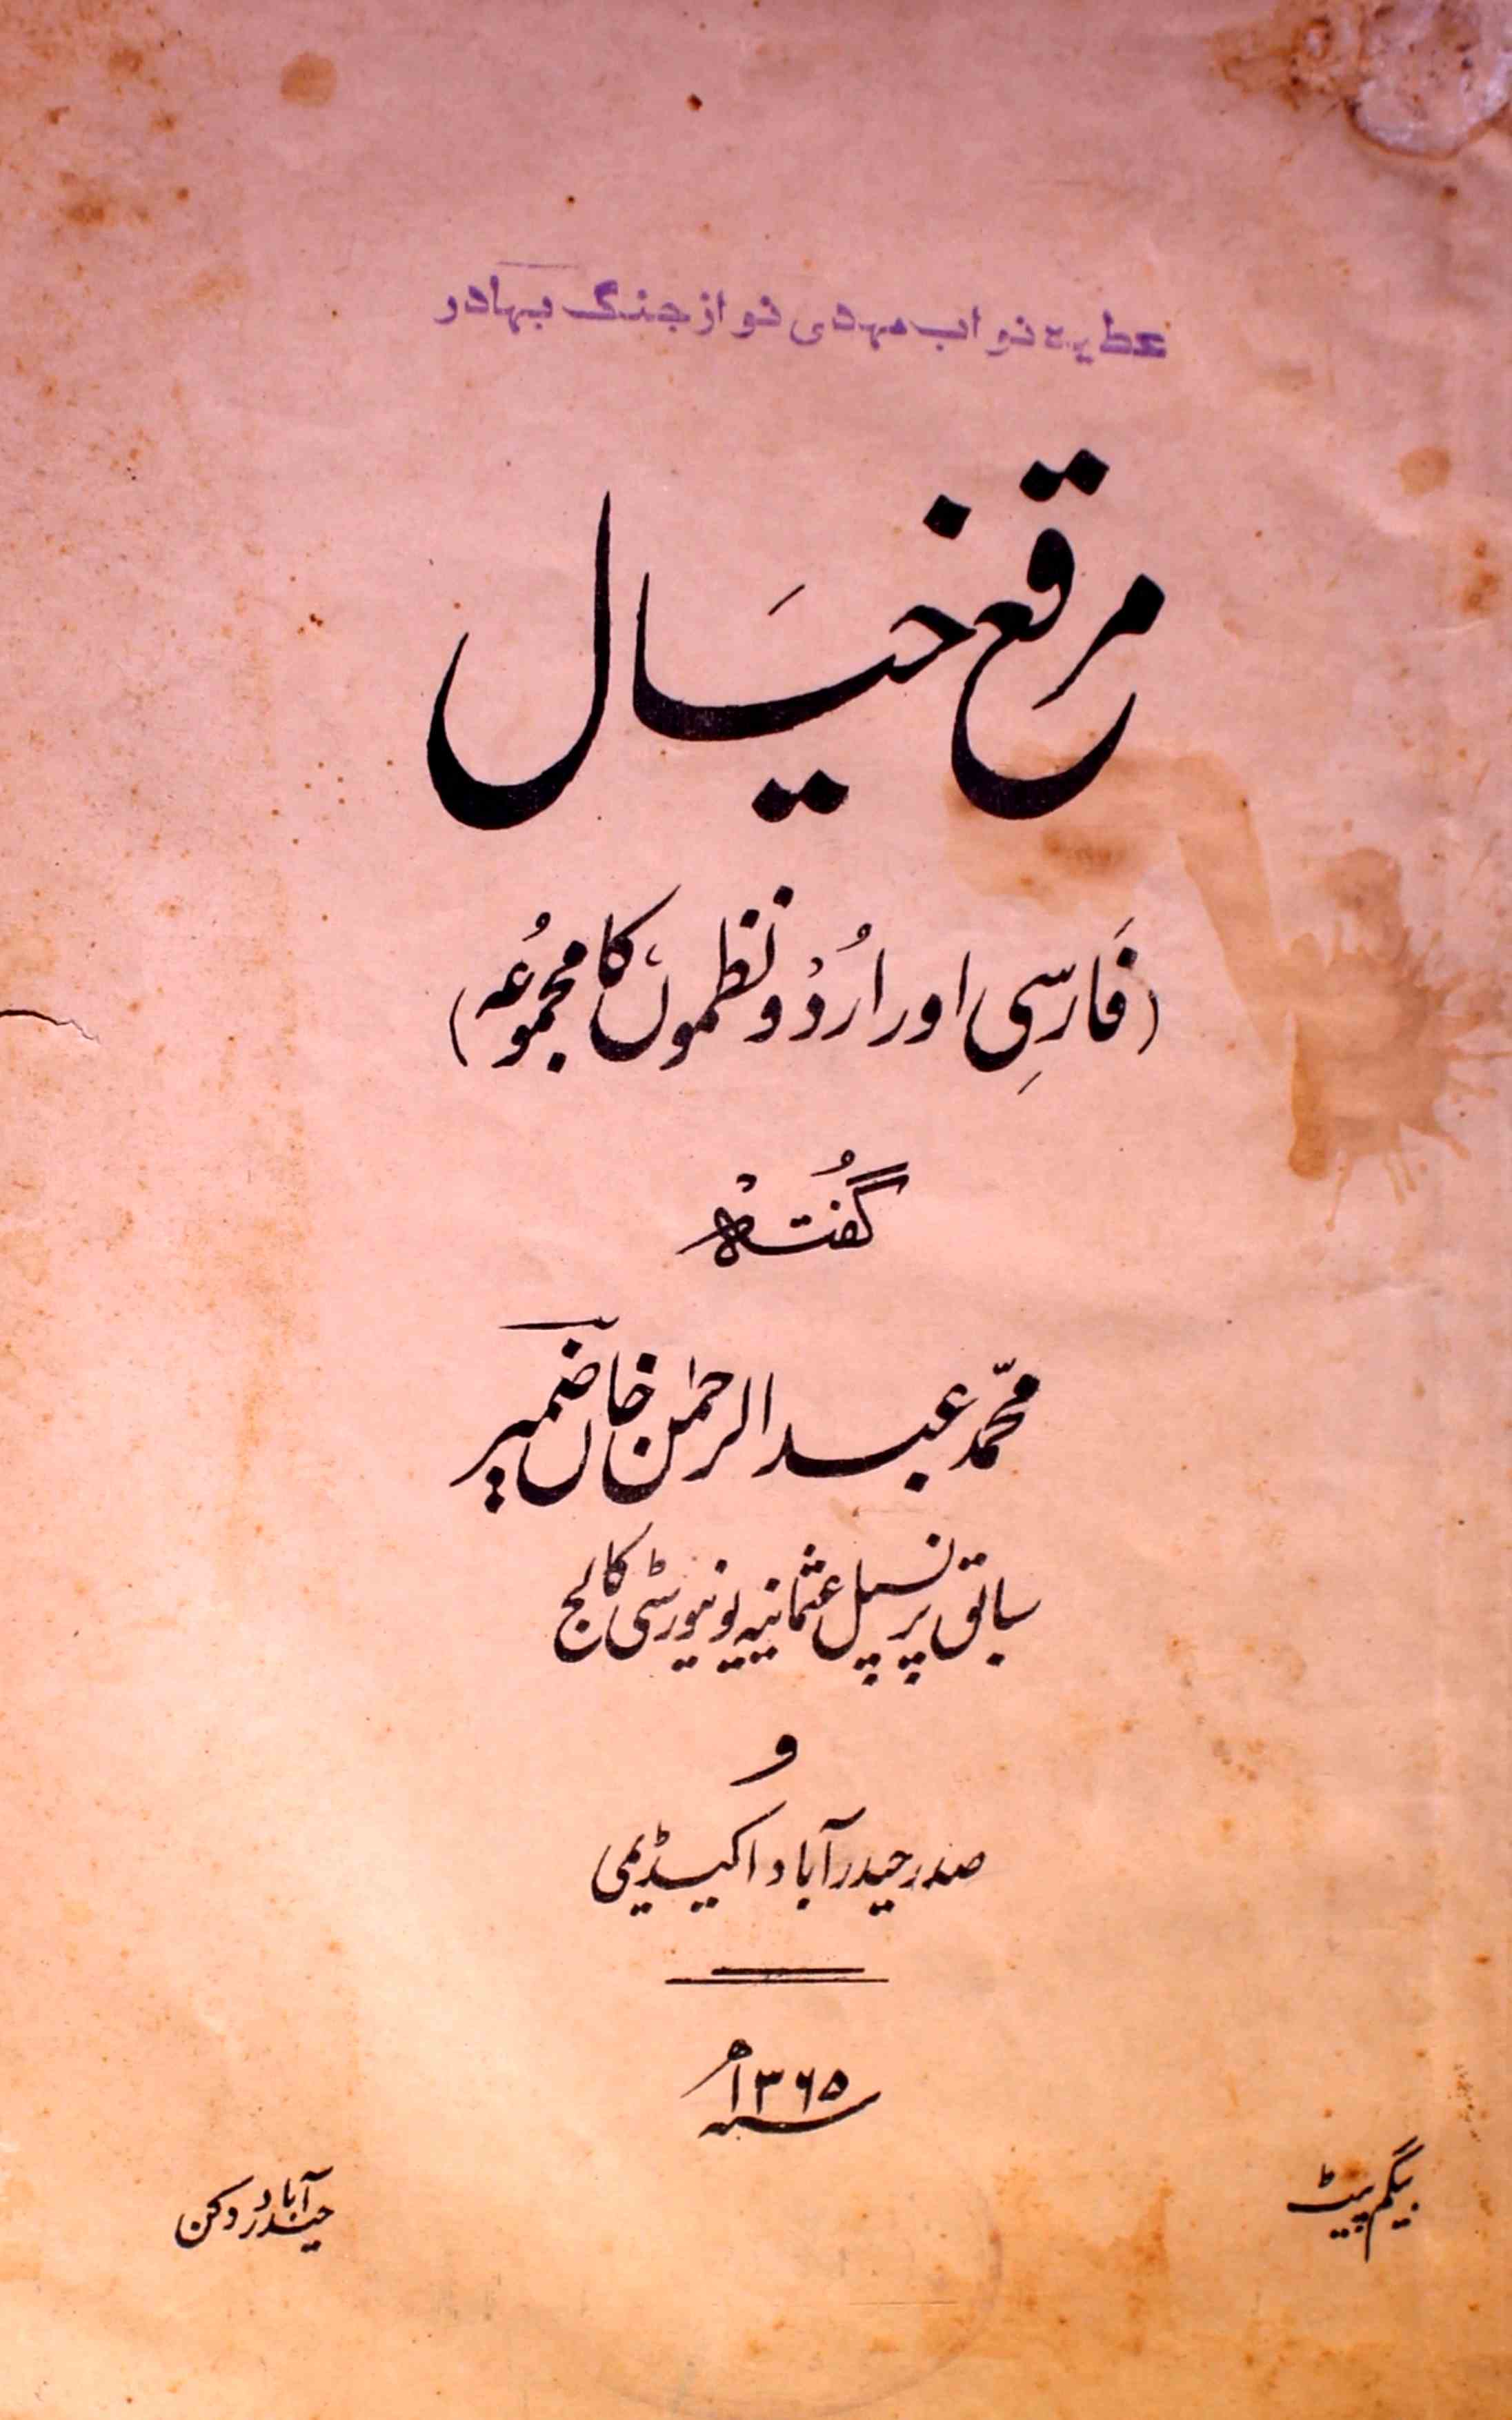 عطیہ نواب مہدی نواز جنگ بہادر
مرقع خیَال
(فَارسّیِ اور اُردْو نظموں کا مجموُعہ)
گُفتہْ
محمّد عبدالرحمٰن خاں ضمیر
سابق پرنسپل عثمانیہ یونیورسٹی کالج
و
صدر حیدرآباد اکیڈیمی
سنہ ۱۳۶۵ھ
بیگم پیٹ
حیدرآباد دکن